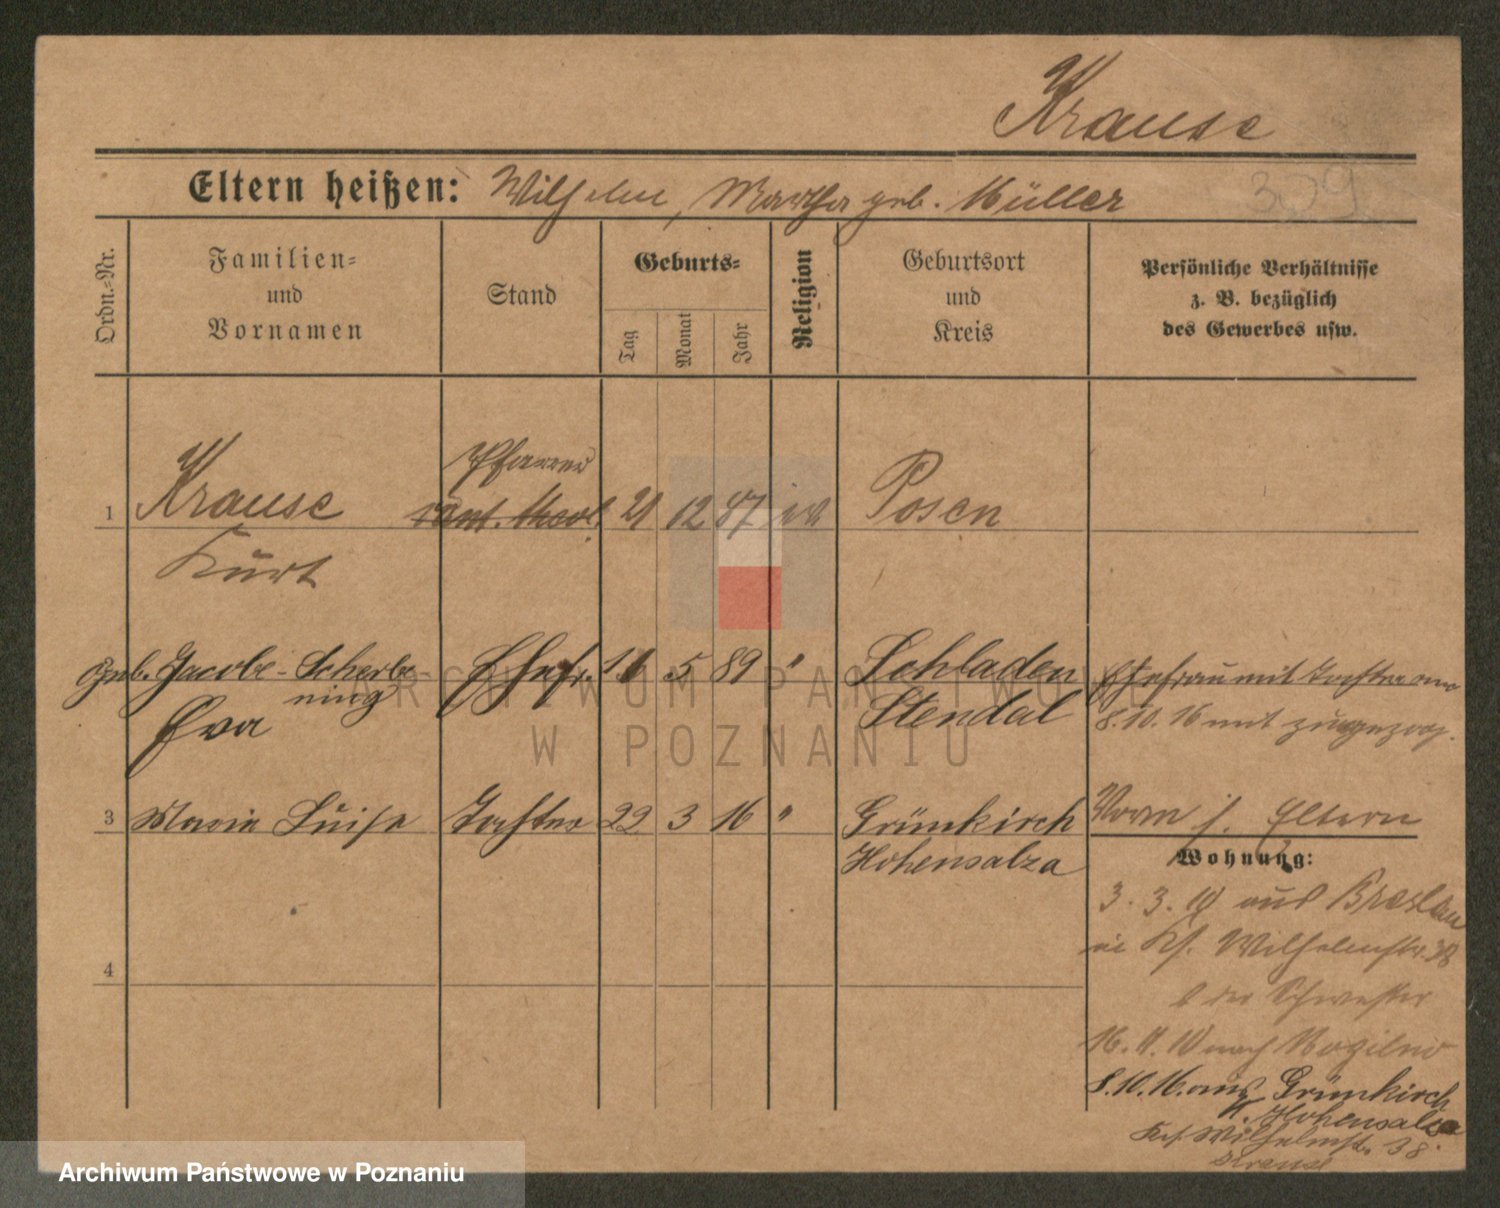 Krause
Eltern heißen: Wilhelm, Martha geb. Müller
309
Ordn.-Nr.
Familien-
und
Vornamen
Stand
Geburts-
Tag
Monat
Jahr
Religion
Geburtsort
und
Kreis
Persönliche Verhältnisse
z. B. bezüglich
des Gewerbes usw.
Pfarrer
1 Krause cant. theol. 21 12 87 ev Posen
Kurt
geb. Jacobi-Scherbe- Ehefr. 16 5 89 " Schladen Ehefrau mit Tochter am
ning Stendal 8.10.16 mit zugezog.
Eva
3 Maria Luise Tochter 22 3 16 " Grünkirch Vorm j. Eltern
Hohensalza
Wohnung:
3. 3. aus Breslau
in Wilhelmstr. 38
b der Schwester
4
16. 4. nach Mogilno
8.10.16. aus Grünkirch
K. Hohensalza
Wilhelmstr. 38.
Krause
ARCHIWUM PAŃSTWOWE
W POZNANIU
Archiwum Państwowe w Poznaniu